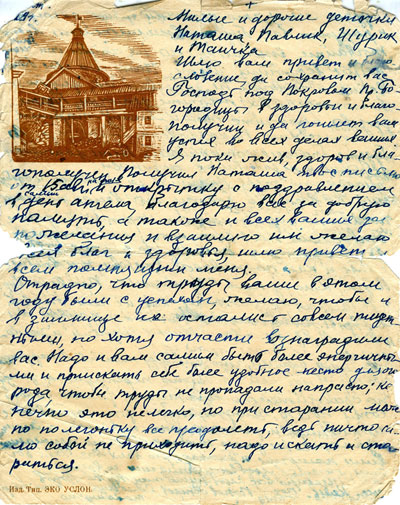 Милые и дорогие деточки
Наташа, Павлик, Шурик
и Танечка
Шлю вам привет и благо
словение да сохранит вас
Господь под Покровом Пр. Бо
городицы в здоровьи и благо
получии и да пошлет вам
успех во всех делах ваших
Я пока жив, здоров и бла
гополучен. Получил Наташа твое письмо
от Вас и открытку с поздравлением
с днем ангела благодарю вас за добрую
память, а также и всех ваших за
пожелания и взаимно им желаю
всех благ и здоровья, шлю привет
всем помнящим меня.
Отрадно, что труды ваши в этом
году были с успехом, желаю, чтобы и
в
не остались совсем тщет
ными, но хотя отчасти вознаградили
вас. Надо и вам самим быть более энергичны
ми и приискать себе более удобное место для ого
рода чтобы труды не пропадали напрасно; ко
нечно это нелегко, но при старании мож
но полегоньку все преодолеть, ведь ничто са
мо собой не приходит, надо искать и ста
раться.
Изд. Тип. ЭКО УСЛОН.